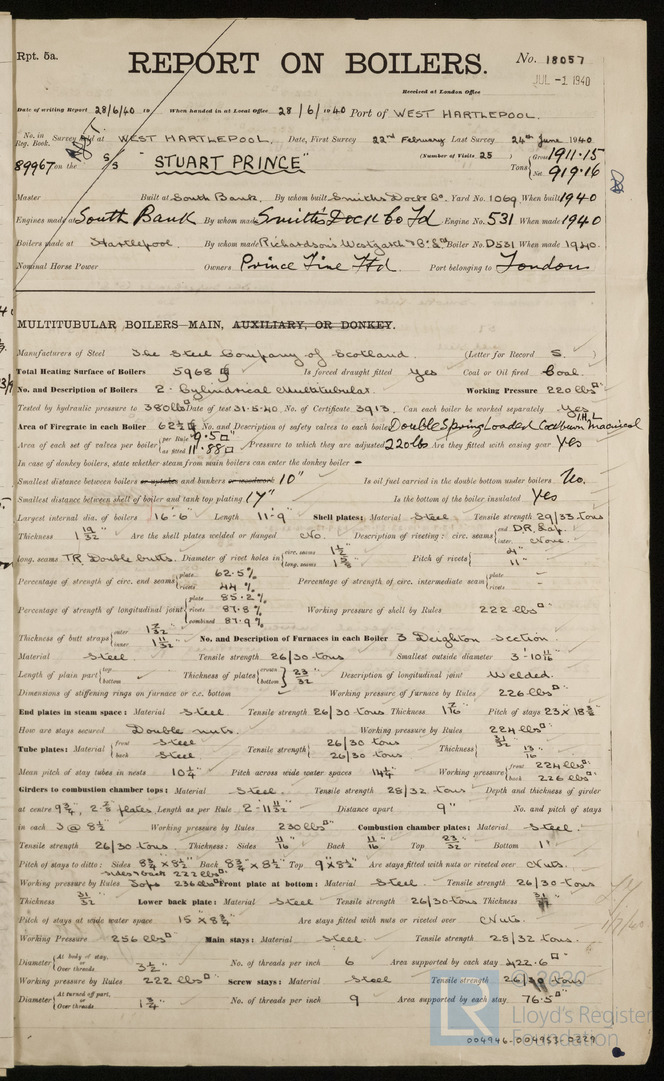 Rpt. 5a.
REPORT ON BOILERS.
No. 18057
JUL -1 1940
Received at London Office
Date of writing Report 28/6/40 19 When handed in at Local Office 28/6/1940 Port of WEST HARTLEPOOL.
No. in Reg. Book. Survey held at WEST HARTLEPOOL. Date, First Survey 22nd February Last Survey 24th June 1940
89967 on the S/S "STUART PRINCE" (Number of Visits 25) Tons { Gross 1911.15
Net 919.16
Master Built at South Bank. By whom built Smiths Dock Co. Yard No. 1069 When built 1940
Engines made at South Bank By whom made Smith's Dock Co Ltd Engine No. 531 When made 1940
Boilers made at Hartlepool. By whom made Richardson's Westgarth & Co. Ltd Boiler No. D531 When made 1940.
Nominal Horse Power Owners Prince Line Ltd. Port belonging to London
MULTITUBULAR BOILERS—MAIN, AUXILIARY, OR DONKEY.
Manufacturers of Steel The Steel Company of Scotland. (Letter for Record S.)
Total Heating Surface of Boilers 5968 Is forced draught fitted Yes Coal or Oil fired Coal.
No. and Description of Boilers 2 - Cylindrical Multitubular. Working Pressure 220 lbs□"
Tested by hydraulic pressure to 380 lbs Date of test 31.5.40. No. of Certificate 3913. Can each boiler be worked separately Yes
Area of Firegrate in each Boiler 62½ No. and Description of safety valves to each boiler Double Spring Loaded Cockburn Macnicol
Area of each set of valves per boiler { per Rule 9.5□" as fitted 11.88□" Pressure to which they are adjusted 220 lbs Are they fitted with easing gear Yes
In case of donkey boilers, state whether steam from main boilers can enter the donkey boiler -
Smallest distance between boilers or uptakes and bunkers or woodwork 10" Is oil fuel carried in the double bottom under boilers No.
Smallest distance between shell of boiler and tank top plating 17" Is the bottom of the boiler insulated Yes
Largest internal dia. of boilers 16'-6" Length 11'-9" Shell plates: Material Steel Tensile strength 29/33 tons
Thickness 1 19/32 Are the shell plates welded or flanged No. Description of riveting: circ. seams { end D.R. Lap. inter. None.
long. seams TR Double butts. Diameter of rivet holes in { circ. seams long. seams Pitch of rivets { 4" 11"
Percentage of strength of circ. end seams { plate 62.5% rivets 44% Percentage of strength of circ. intermediate seam { plate - rivets -
Percentage of strength of longitudinal joint { plate 85.2% rivets 87.8% combined 87.9% Working pressure of shell by Rules 222 lbs□"
Thickness of butt straps { outer 1 7/32 inner 1 11/32 No. and Description of Furnaces in each Boiler 3 Deighton section.
Material Steel Tensile strength 26/30 tons Smallest outside diameter 3'-10 11/16"
Length of plain part { top bottom Thickness of plates { crown bottom } 23/32 Description of longitudinal joint Welded.
Dimensions of stiffening rings on furnace or c.c. bottom Working pressure of furnace by Rules 226 lbs□"
End plates in steam space: Material Steel Tensile strength 26/30 tons Thickness 1 7/16 Pitch of stays 23 x 18¾
How are stays secured Double nuts. Working pressure by Rules 224 lbs□"
Tube plates: Material { front Steel back Steel Tensile strength { 26/30 tons 26/30 tons Thickness { 31/32 13/16
Mean pitch of stay tubes in nests 10¼ Pitch across wide water spaces 14¼ Working pressure { front 224 lbs□" back 226 lbs□"
Girders to combustion chamber tops: Material Steel. Tensile strength 28/32 tons. Depth and thickness of girder
at centre 9¾, plates. Length as per Rule 2'-11 11/32 Distance apart 9" No. and pitch of stays
in each 3 @ 8½ Working pressure by Rules 230 lbs□" Combustion chamber plates: Material Steel.
Tensile strength 26/30 tons Thickness: Sides 11/16 Back 11/16 Top 23/32 Bottom 1"
Pitch of stays to ditto: Sides 8¾ x 8½ Back 8¾ x 8½ Top 9" x 8½ Are stays fitted with nuts or riveted over Nuts.
sides & back 222 lbs□"
Working pressure by Rules Tops 236 lbs□" Front plate at bottom: Material Steel. Tensile strength 26/30 tons
Thickness 31/32 Lower back plate: Material Steel Tensile strength 26/30 tons Thickness
Pitch of stays at wide water space 15 x 8¾ Are stays fitted with nuts or riveted over Nuts.
Working Pressure 256 lbs□" Main stays: Material Steel. Tensile strength 28/32 tons.
Diameter { At body of stay, or Over threads 3½ No. of threads per inch 6 Area supported by each stay 422.6□"
Working pressure by Rules 222 lbs□" Screw stays: Material Steel Tensile strength 26/30 tons
Diameter { At turned off part, or Over threads 1¾ No. of threads per inch 9 Area supported by each stay 76.5□"
© 2020
LR
Lloyd's Register
Foundation
004946-004953-0229